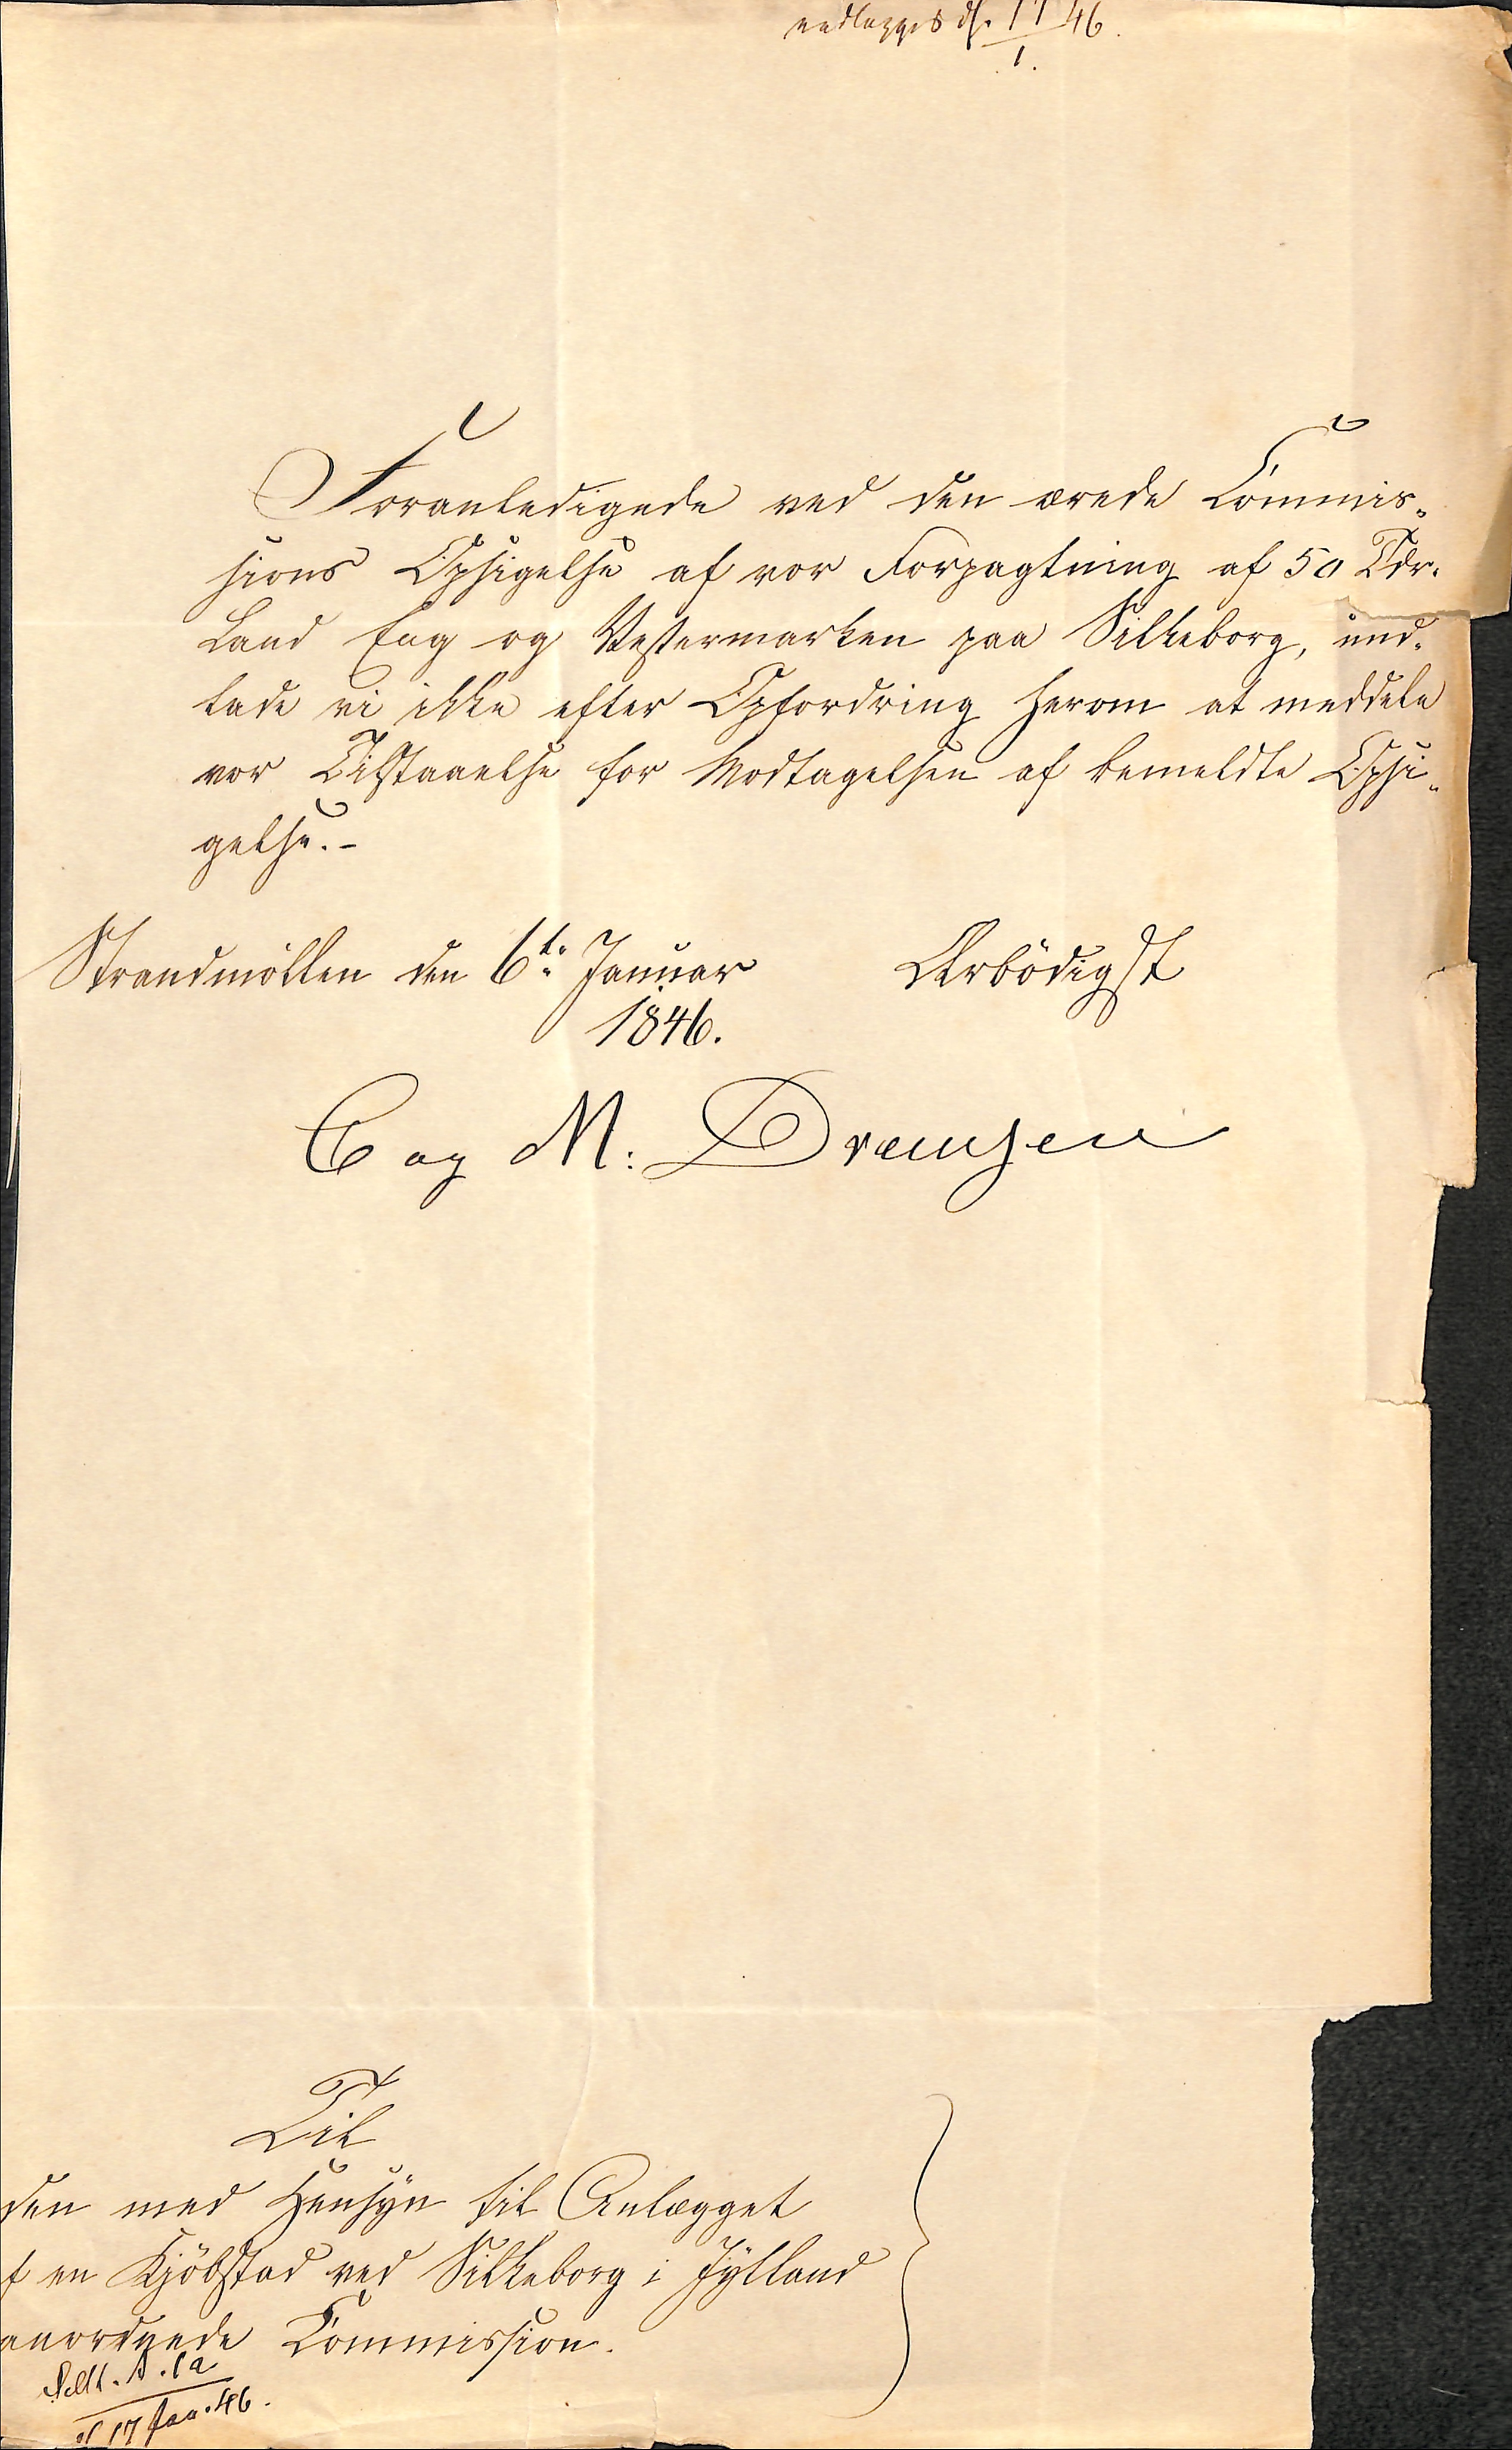 nedlægges d. 17/1 46.
Foranledigede ved den ærede Commis„
sions Opsigelse af vor Forpagtning af 50 Tdr.
Land Eng og Vestermarken paa Silkeborg, und„
lade vi ikke efter Opfordring herom at meddele
vor Tilstaaelse for Modtagelsen af bemeldte Opsi„
gelse.-
Strandmöllen den 6te Januar Ærbödigst
1846.
C og M: Drewsen
Til
den med Hensyn til Anlægget
f en Kjöbstad ved Silkeborg i Jylland
anordnede Commission.
d 17 Jan. 46.